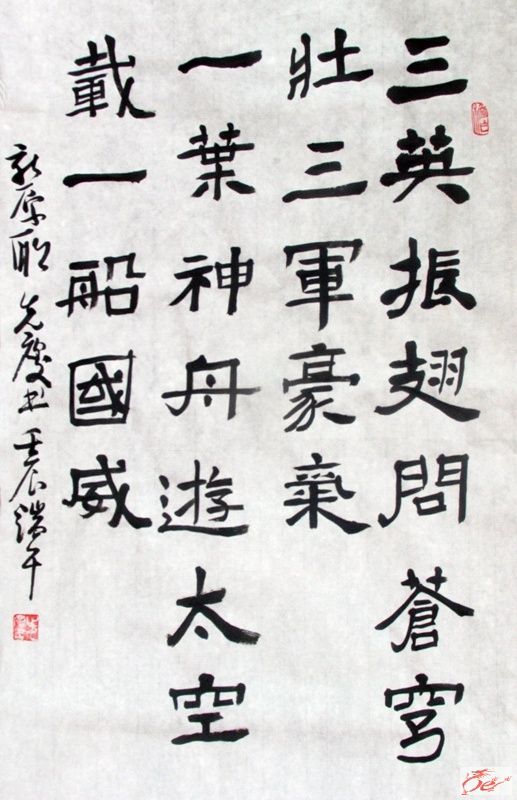 三英振翅問蒼穹
壯三軍豪氣
一葉神舟遊太空
載一船國威
先慶书 壬辰端午